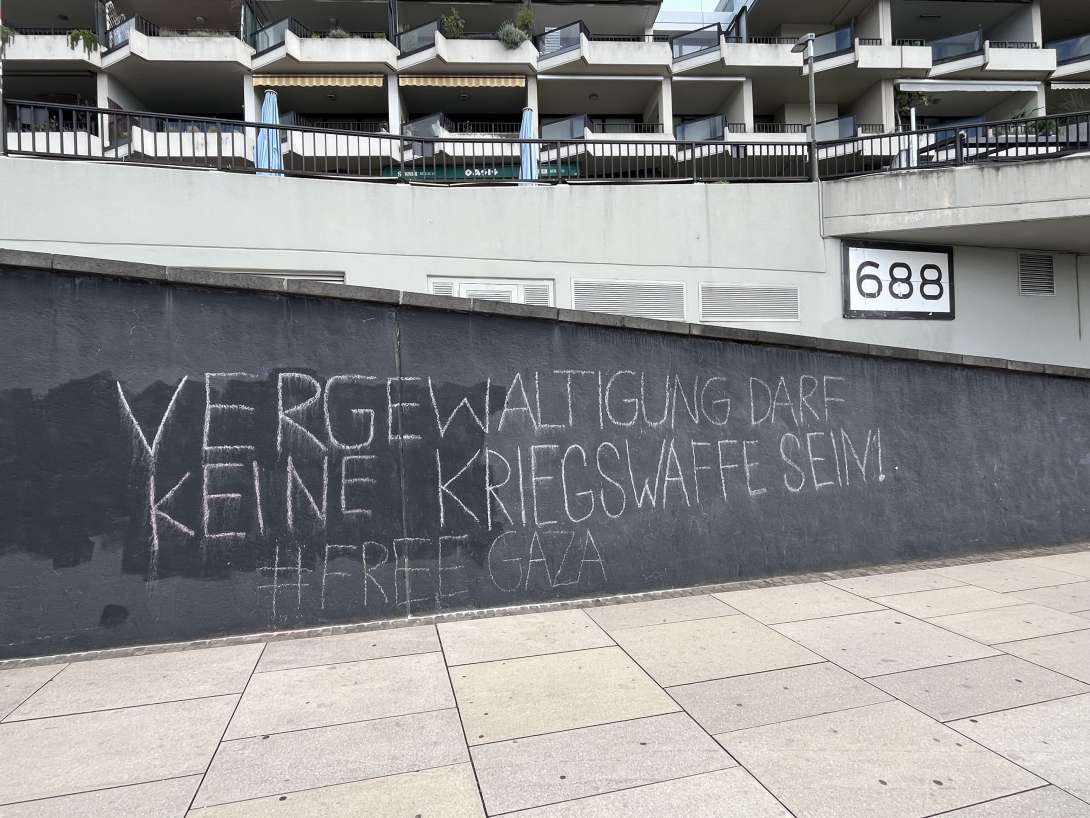 688
VERGEWALTIGUNG DARF
KEINE KRIEGSWAFFE SEIN!
#FREE GAZA